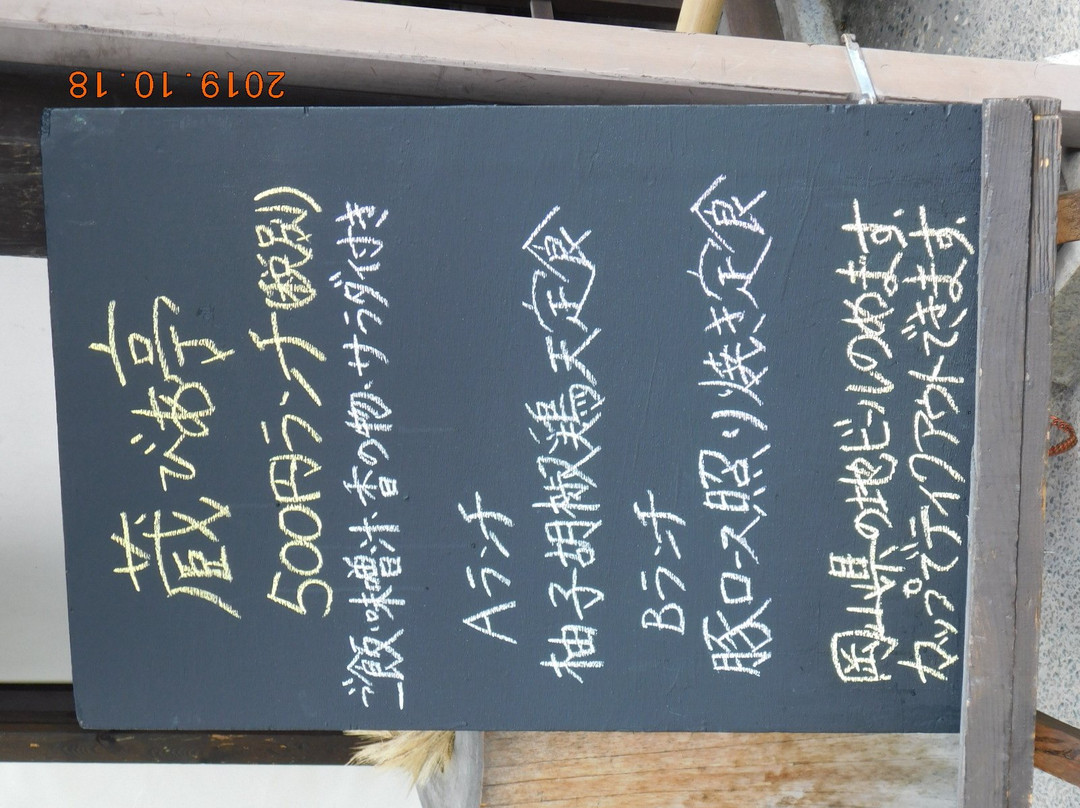 蔵びあ亭
500円ランチ(税別)
ご飯・味噌汁・香の物・サラダ付き
Aランチ
柚子胡椒鶏天定食
Bランチ
豚ロース照り焼き定食
岡山県の地ビールのめます
カップでテイクアウトできます。
2019.10.18